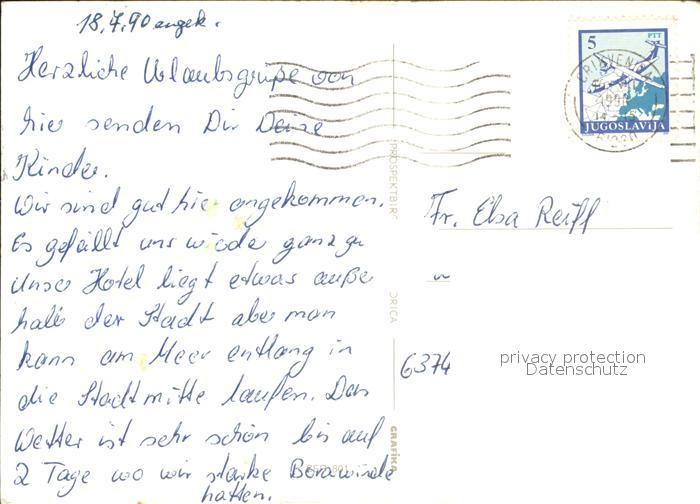 18.7.90 angek.
Herzliche Urlaubsgrüße von
hier senden Dir Deine
Kinder.
Wir sind gut hier angekommen.
Es gefällt uns wieder ganz gu
Unser Hotel liegt etwas außer
halb der Stadt aber man
kann am Meer entlang in
die Stadtmitte laufen. Das
Wetter ist sehr schön bis auf
2 Tage wo wir starke Borawinde
hatten.
5
PTT
CRIKVENICA
JUGOSLAVIJA
Fr. Elsa Reiff
6374
privacy protection
Datenschutz
PROSPEKTBIRO
ORICA
GRAFIKA